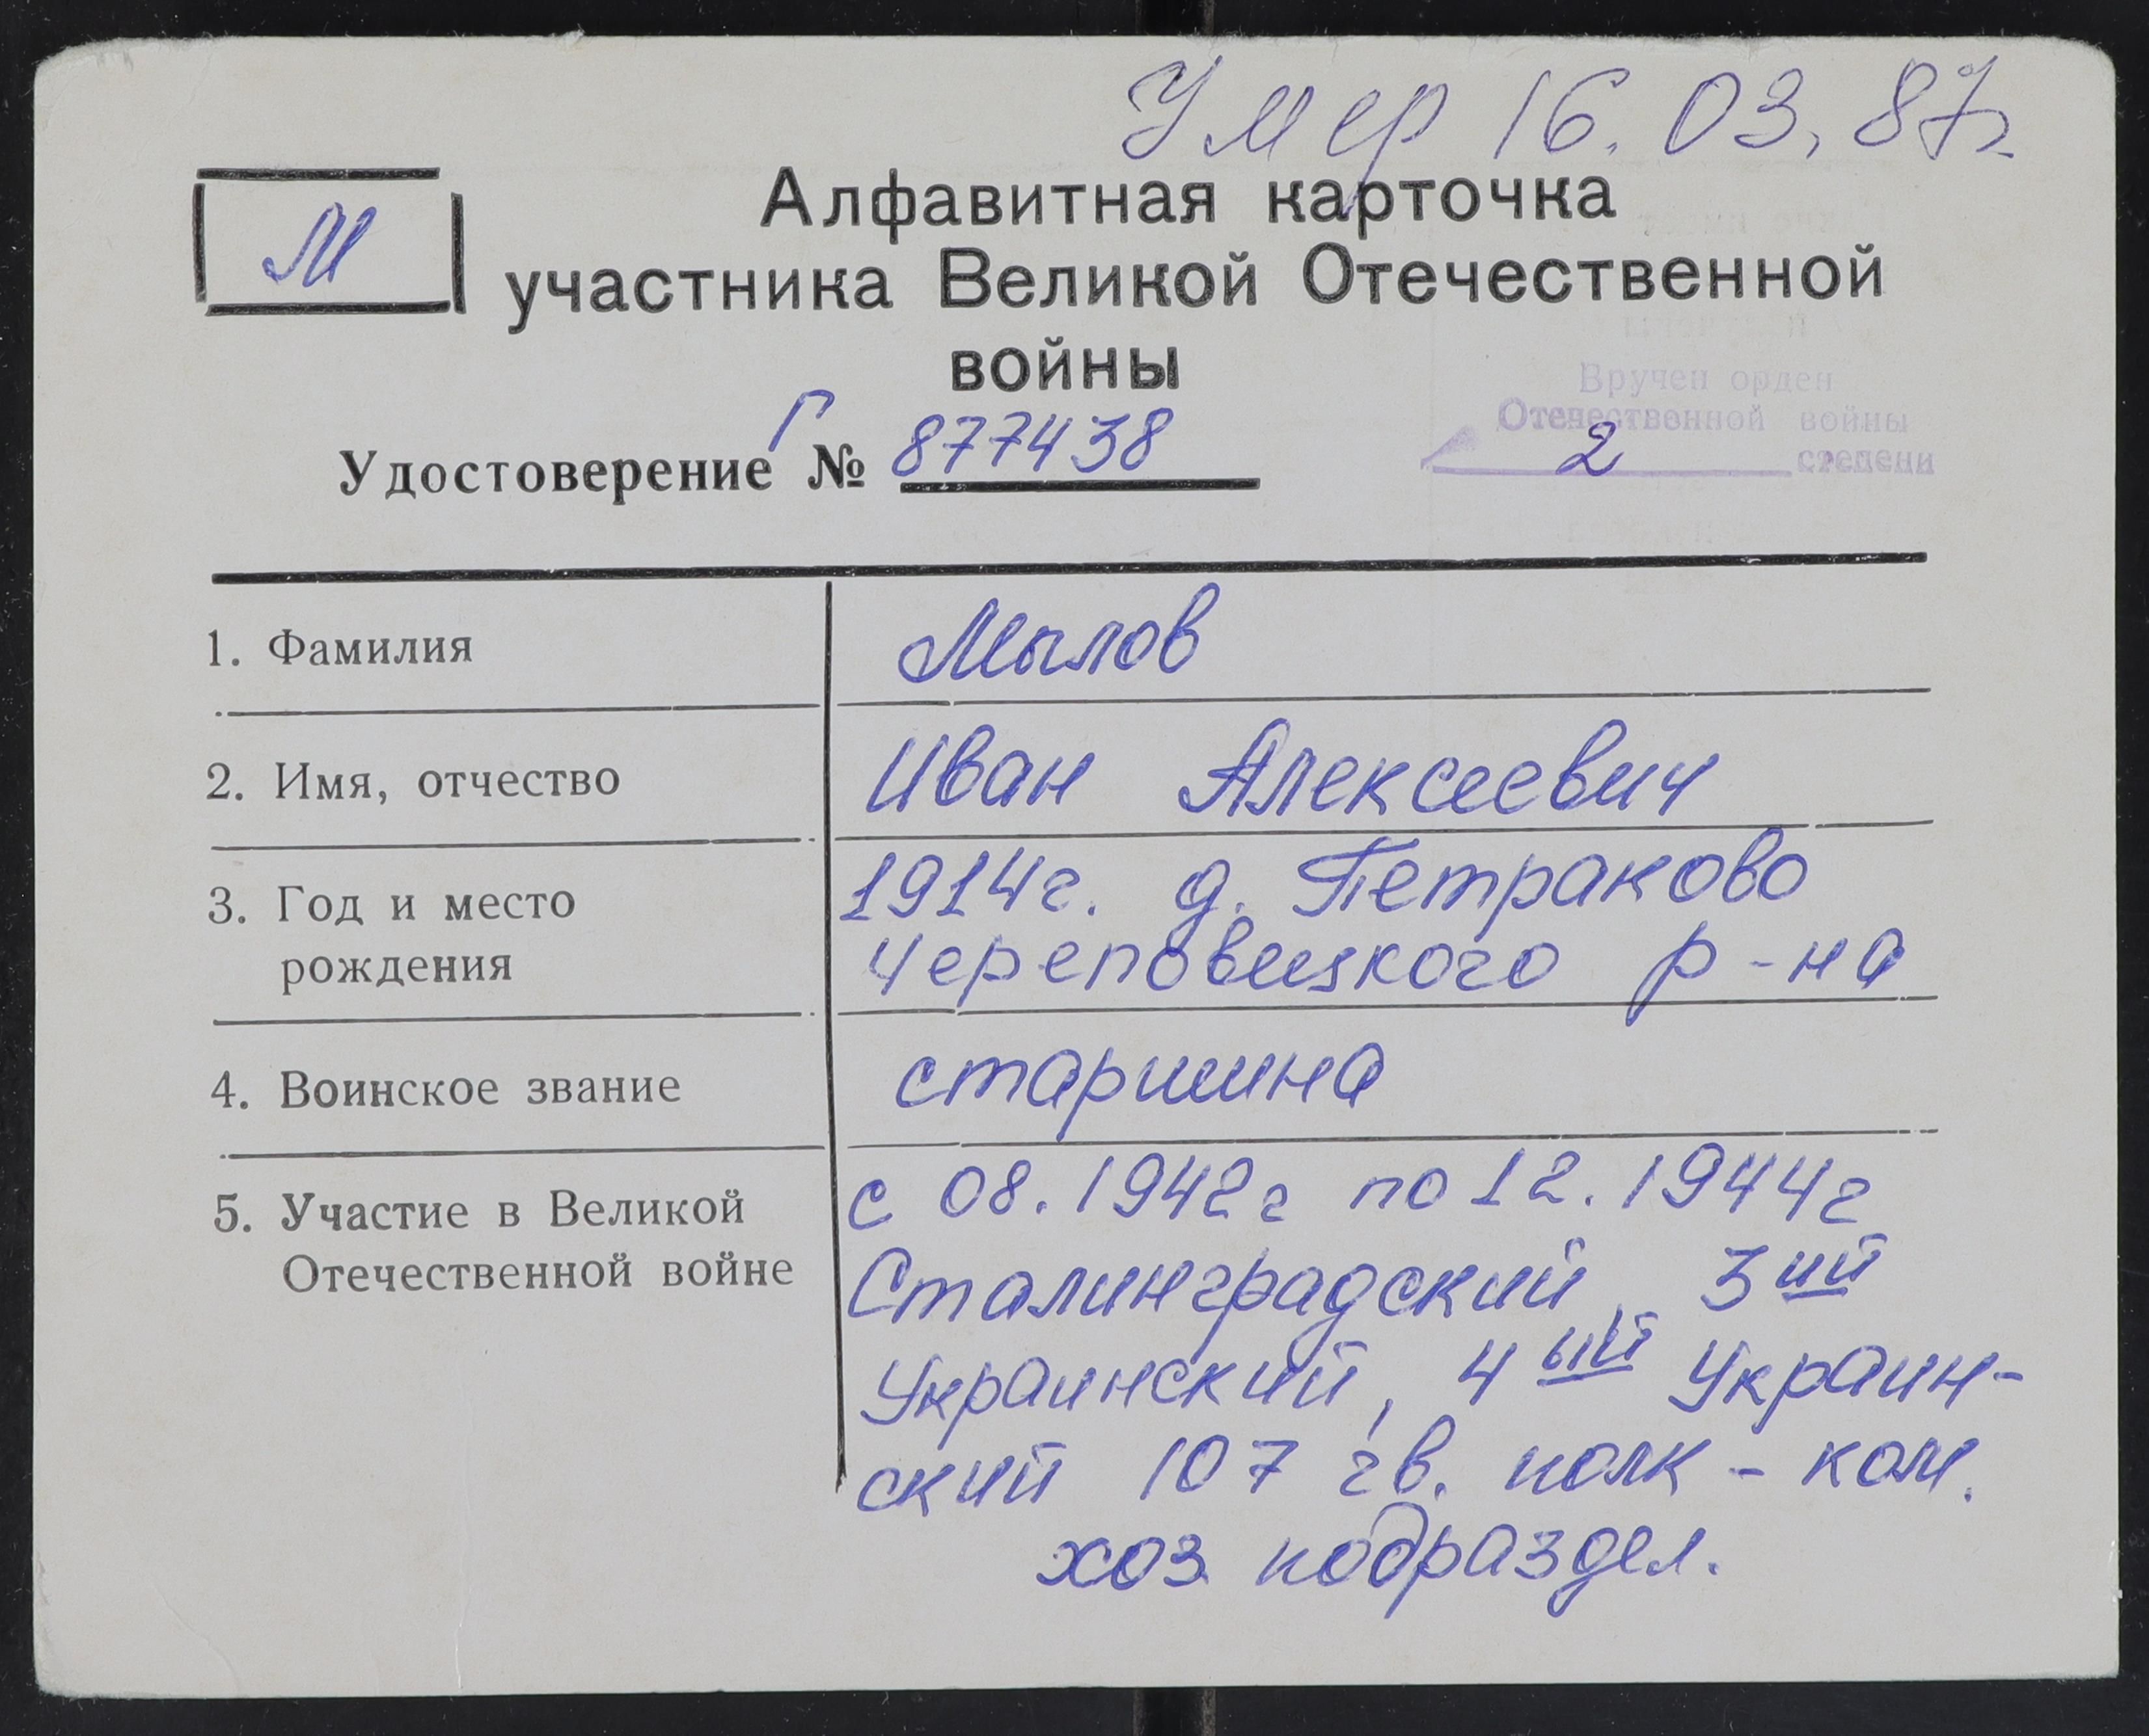 Умер 16.03.87г.
М
Алфавитная карточка
участника Великой Отечественной
войны
Вручен орден
Отечественной войны
2 степени
Удостоверение Г № 877438
1. Фамилия
Мылов
2. Имя, отчество
Иван Алексеевич
3. Год и место
рождения
1914г. д. Петраково
Череповецкого р-на
4. Воинское звание
старшина
5. Участие в Великой
Отечественной войне
с 08.1942г по 12.1944г
Сталинградский, 3ий
Украинский, 4ый Украин-
ский 107 гв. полк - ком.
хоз подраздел.